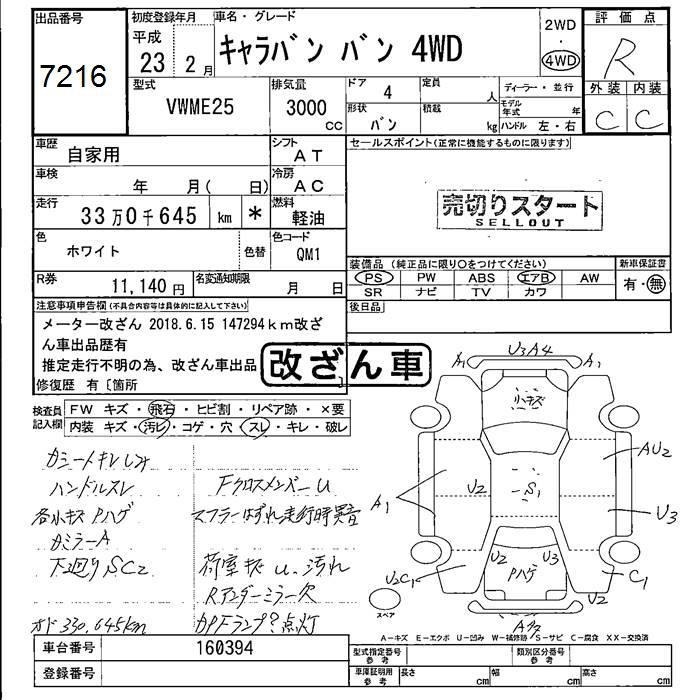 出品番号 7216
初度登録年月 平成 23 2月
車名・グレード キャラバン バン 4WD
2WD ・ 4WD
評価点 R
外装 C 内装 C
型式 VWME25
排気量 3000 CC
ドア 4
定員 人
形状 バン
積載 kg
ディーラー・並行
モデル年式 年
ハンドル 左・右
車歴 自家用
シフト AT
セールスポイント(正常に機能するものに限ります)
車検 年 月( 日)
冷房 AC
走行 33万0千645 km *
燃料 軽油
売切りスタート
SELLOUT
色 ホワイト 色替
色コード QM1
装備品 (純正品に限り○をつけてください)
新車保証書
PS PW ABS エアB AW
有・無
SR ナビ TV カワ
R券 11,140円
名変通知期限 月 日
後日品
注意事項申告欄(不具合内容等は具体的に記入して下さい)
メーター改ざん 2018.6.15 147294km改ざ
ん車出品歴有
推定走行不明の為、改ざん車出品
改ざん車
修復歴 有〔箇所 〕
検査員記入欄
FW キズ・飛石・ヒビ割・リペア跡・×要
内装 キズ・汚レ・コゲ・穴・スレ・キレ・破レ
ハンドルスレ
FクロスメンバーU
各小キズ Pハゲ
マフラーはずれ走行時異音
カミラーA
下廻りSC2
荷室キズ U 汚れ
Rアンダーミラー欠
オド330,645km
点灯
A1 U3A4 A1
小キズ
AU2
A1
U2
S1
U3
U2 U3
Pハゲ
U2C1
C1
U2
スペア
A-キズ E-エクボ U-凹み W-補修跡 S-サビ C-腐食 XX-交換済
車台番号 160394
型式指定番号 参考
類別区分番号 参考
登録番号
車庫証明用 参考
長さ cm
幅 cm
高さ cm